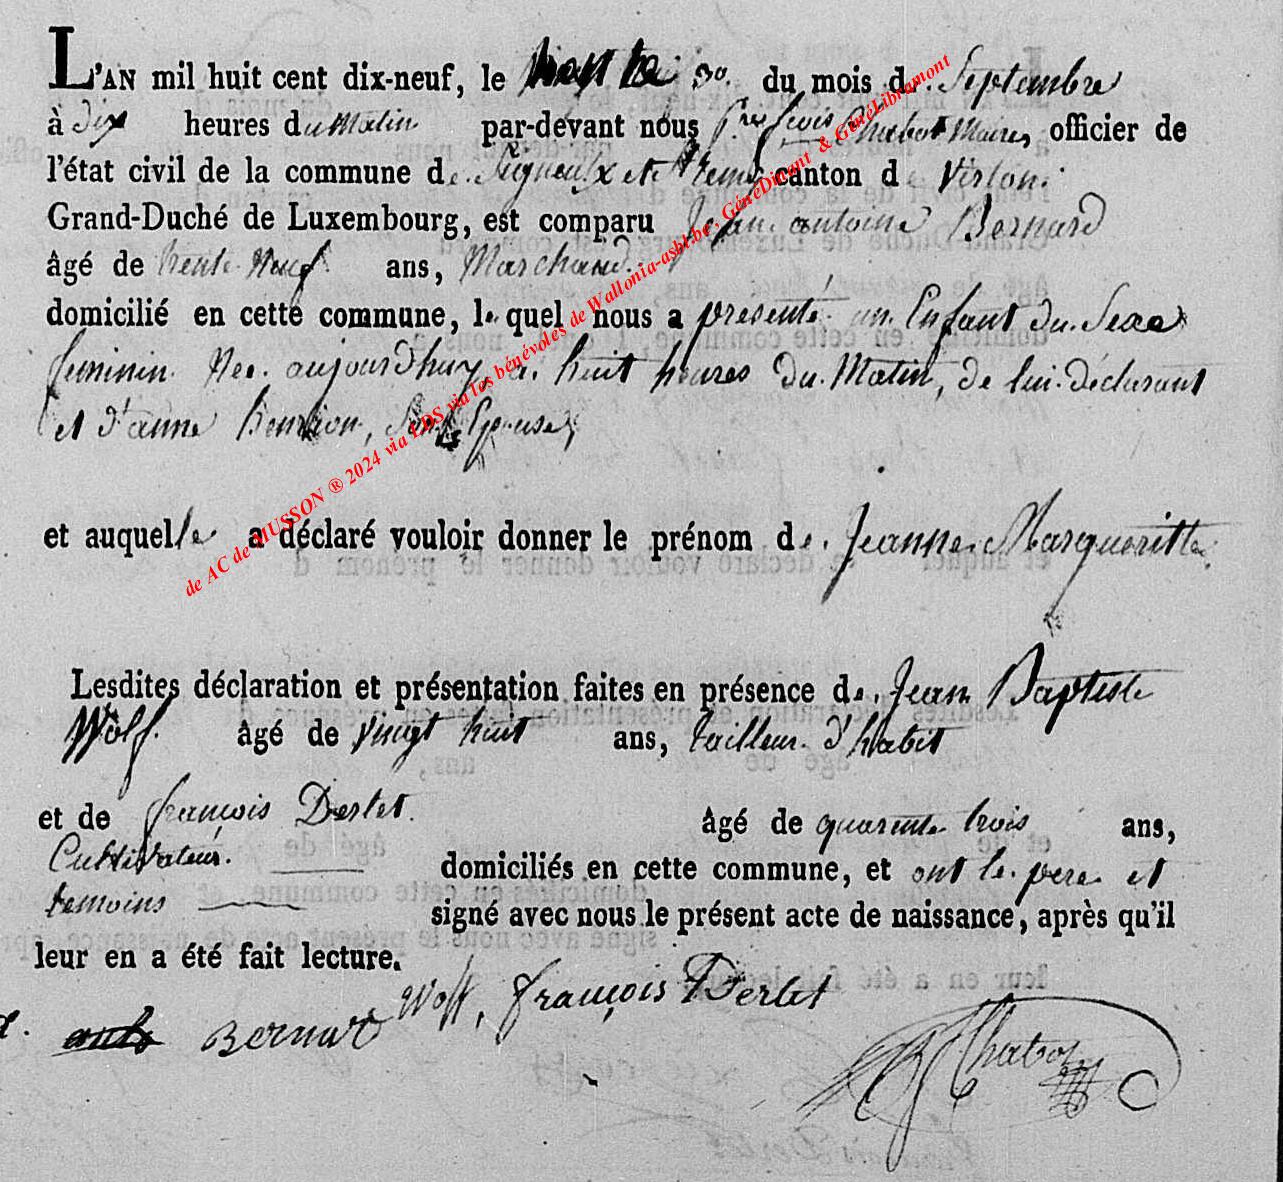 L'AN mil huit cent dix-neuf, le trente 30. du mois de Septembre
à dix heures du Matin par-devant nous françois Chabot Maire, officier de
l'état civil de la commune de Signeulx et canton de Virton
Grand-Duché de Luxembourg, est comparu Jean antoine Bernard
âgé de trente Neuf ans, Marchand
domicilié en cette commune, le quel nous a presenté un Enfant du Sexe
feminin Née aujourd'huy à huit heures du Matin, de lui déclarant
et d'anne Henrion, Son Epouse,
et auquelle a déclaré vouloir donner le prénom de Jeanne Margueritte
Lesdites déclaration et présentation faites en présence de Jean Baptiste
Wolf âgé de vingt huit ans, tailleur d'habit
et de françois Derlet âgé de quarente trois ans,
Cultivateur. domiciliés en cette commune, et ont le pere et
temoins signé avec nous le présent acte de naissance, après qu'il
leur en a été fait lecture.
Wolf, françois Derlet
Bernard
Chabot
de AC de MUSSON ® 2024 via LDS via les bénévoles de Wallonia-asbl.be, GénéDinant & GénéLibramont